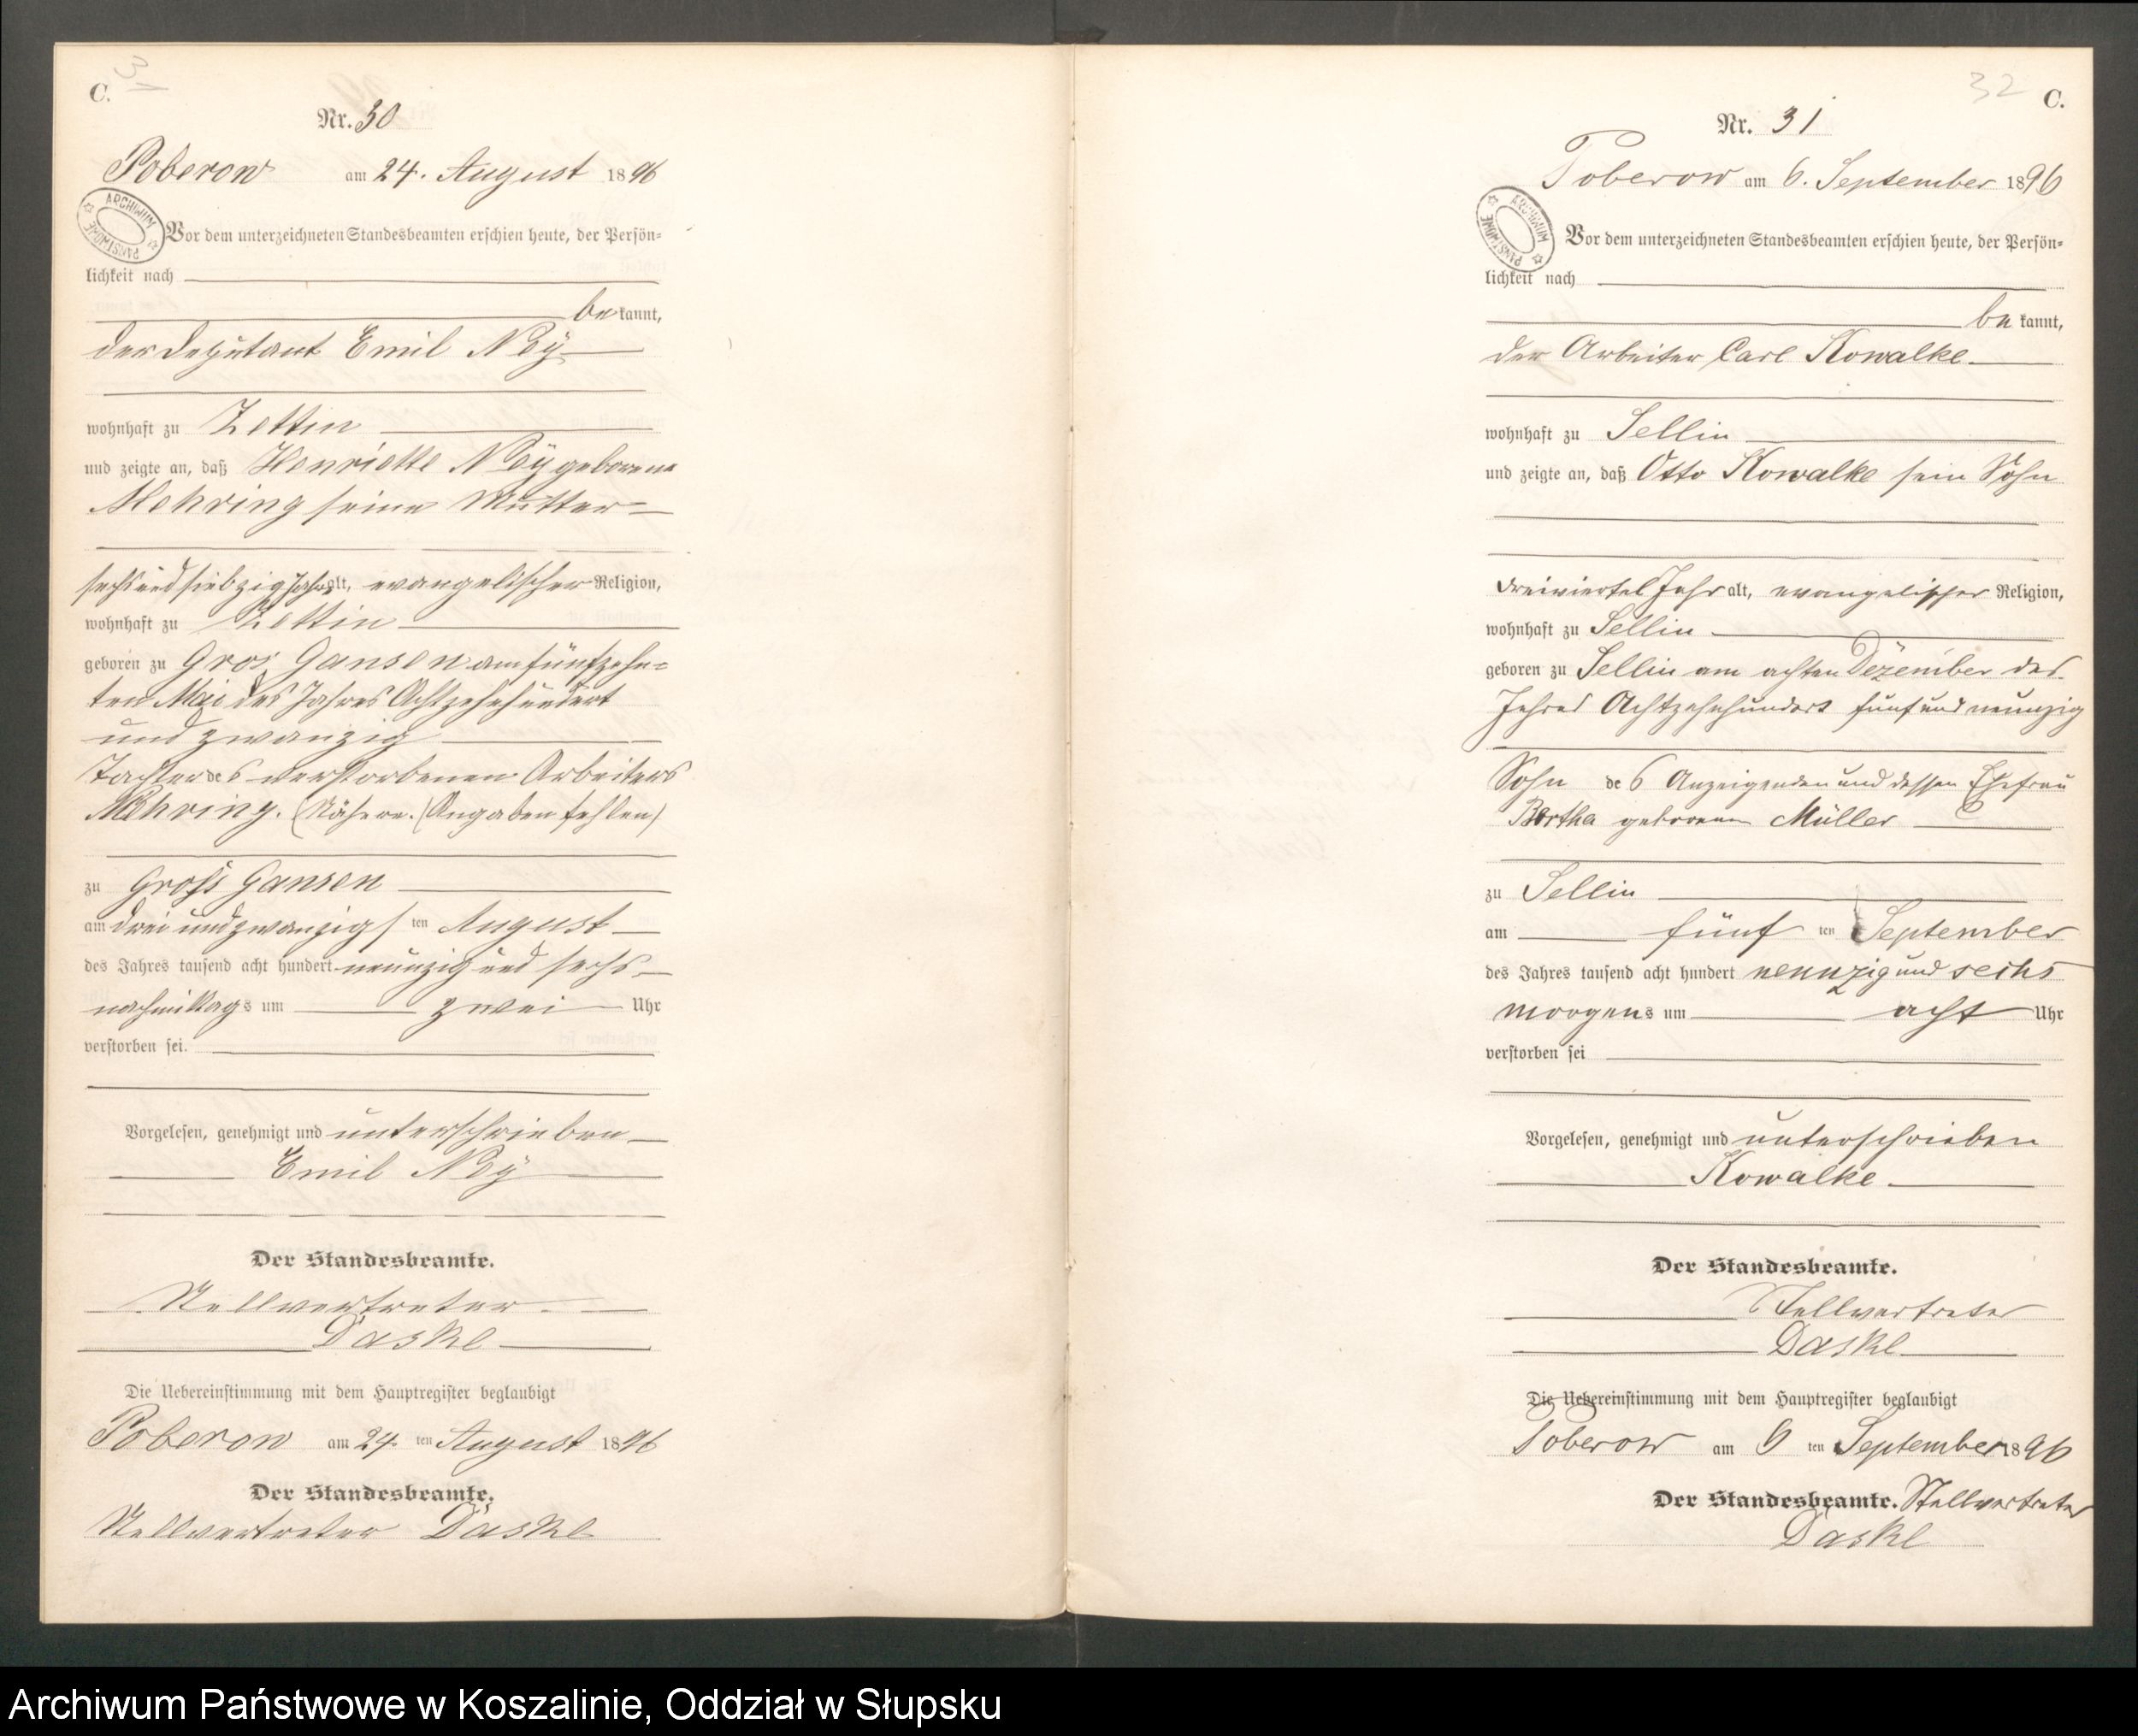 C. 31
Nr. 30
Poberow am 24. August 1896
ARCHIWUM PAŃSTWOWE
Vor dem unterzeichneten Standesbeamten erschien heute, der Persön-
lichkeit nach
be kannt,
der Deputant Emil Ney
wohnhaft zu Zettin
und zeigte an, daß Henriette Ney geborene
Mehring seine Mutter
sechsundsiebzig Jahr alt, evangelischer Religion,
wohnhaft zu Zettin
geboren zu Gros Gansen am fünfzehn-
ten Mai des Jahres Achtzehnhundert
und zwanzig
Tochter des verstorbenen Arbeiters
Mehring. (Nähere Angaben fehlen)
zu Groß Gansen
am dreiundzwanzigsten August
des Jahres tausend acht hundert neunzig und sechs
nachmittags um zwei Uhr
verstorben sei.
Vorgelesen, genehmigt und unterschrieben
Emil Ney
Der Standesbeamte.
Stellvertreter
Daske
Die Uebereinstimmung mit dem Hauptregister beglaubigt
Poberow am 24. ten August 1896
Der Standesbeamte.
Stellvertreter Daske
32 C.
Nr. 31
Poberow am 6. September 1896
ARCHIWUM PAŃSTWOWE
Vor dem unterzeichneten Standesbeamten erschien heute, der Persön-
lichkeit nach
be kannt,
der Arbeiter Carl Kowalke
wohnhaft zu Sellin
und zeigte an, daß Otto Kowalke sein Sohn
dreiviertel Jahr alt, evangelischer Religion,
wohnhaft zu Sellin
geboren zu Sellin am achten Dezember des
Jahres Achtzehnhundert fünf und neunzig
Sohn des Anzeigenden und dessen Ehefrau
Bertha geborenen Müller
zu Sellin
am fünf ten September
des Jahres tausend acht hundert neunzig und sechs
morgens um acht Uhr
verstorben sei
Vorgelesen, genehmigt und unterschrieben
Kowalke
Der Standesbeamte.
Stellvertreter
Daske
Die Uebereinstimmung mit dem Hauptregister beglaubigt
Poberow am 6 ten September 1896
Der Standesbeamte. Stellvertreter
Daske
Archiwum Państwowe w Koszalinie, Oddział w Słupsku